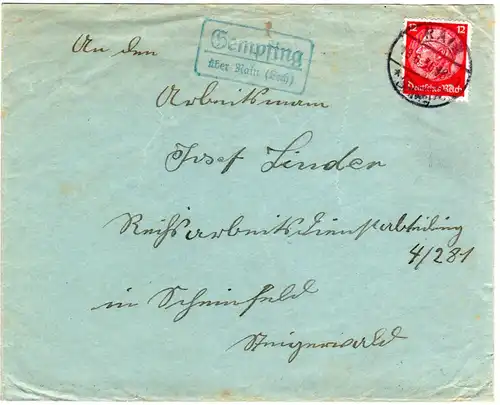 An den
Gempfing
über Rain (Lech)
12 12
RAIN
Deutsches Reich
Arbeitsmann
Josef Linder
Reichsarbeitsdienstabteilung
4/281
in Scheinfeld
Steigerwald